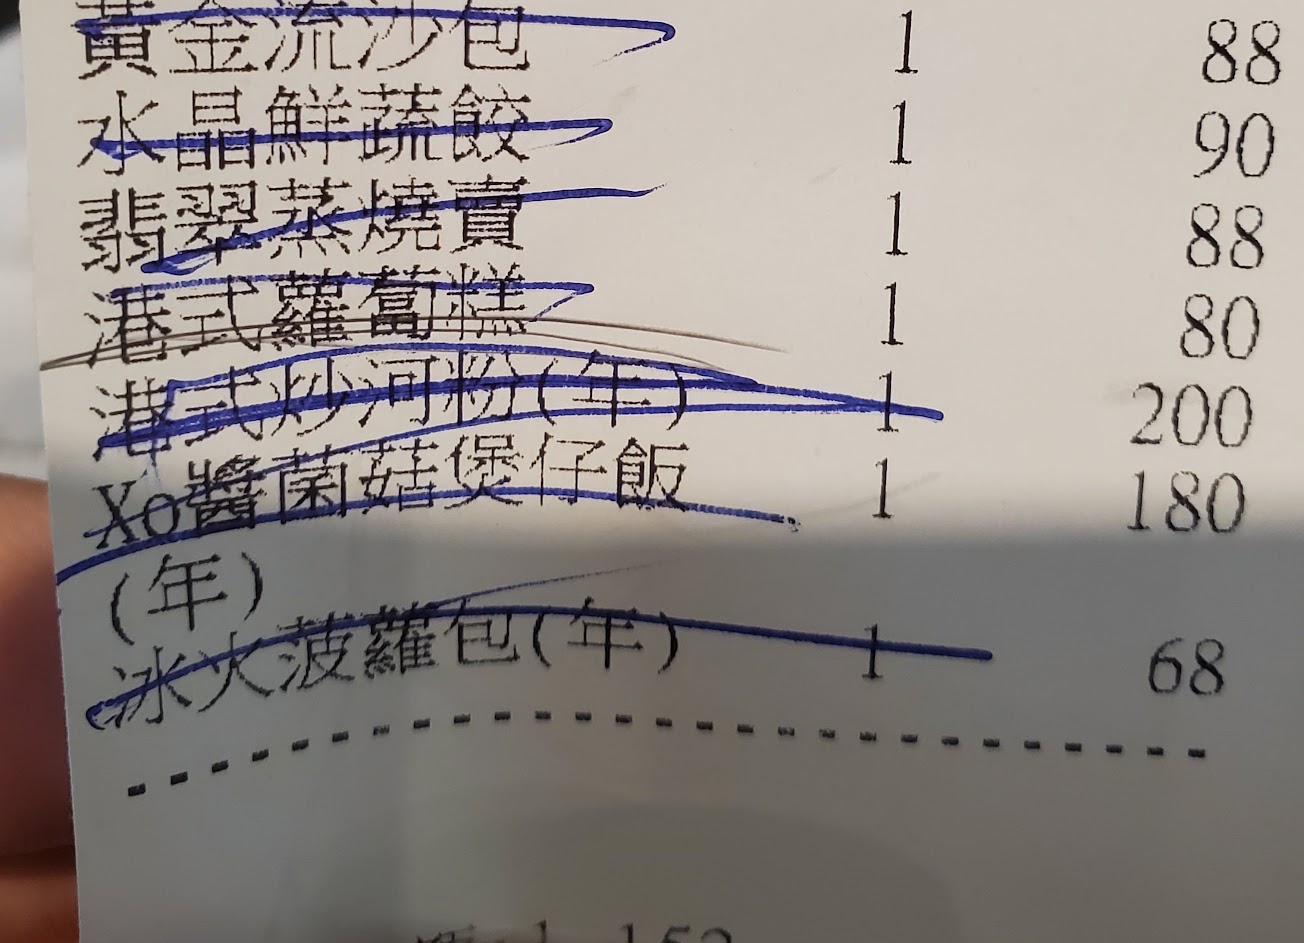 黃金流沙包 1 88
水晶鮮蔬餃 1 90
翡翠蒸燒賣 1 88
港式蘿蔔糕 1 80
港式炒河粉(年) 1 200
Xo醬菌菇煲仔飯 1 180
(年)
冰火菠蘿包(年) 1 68